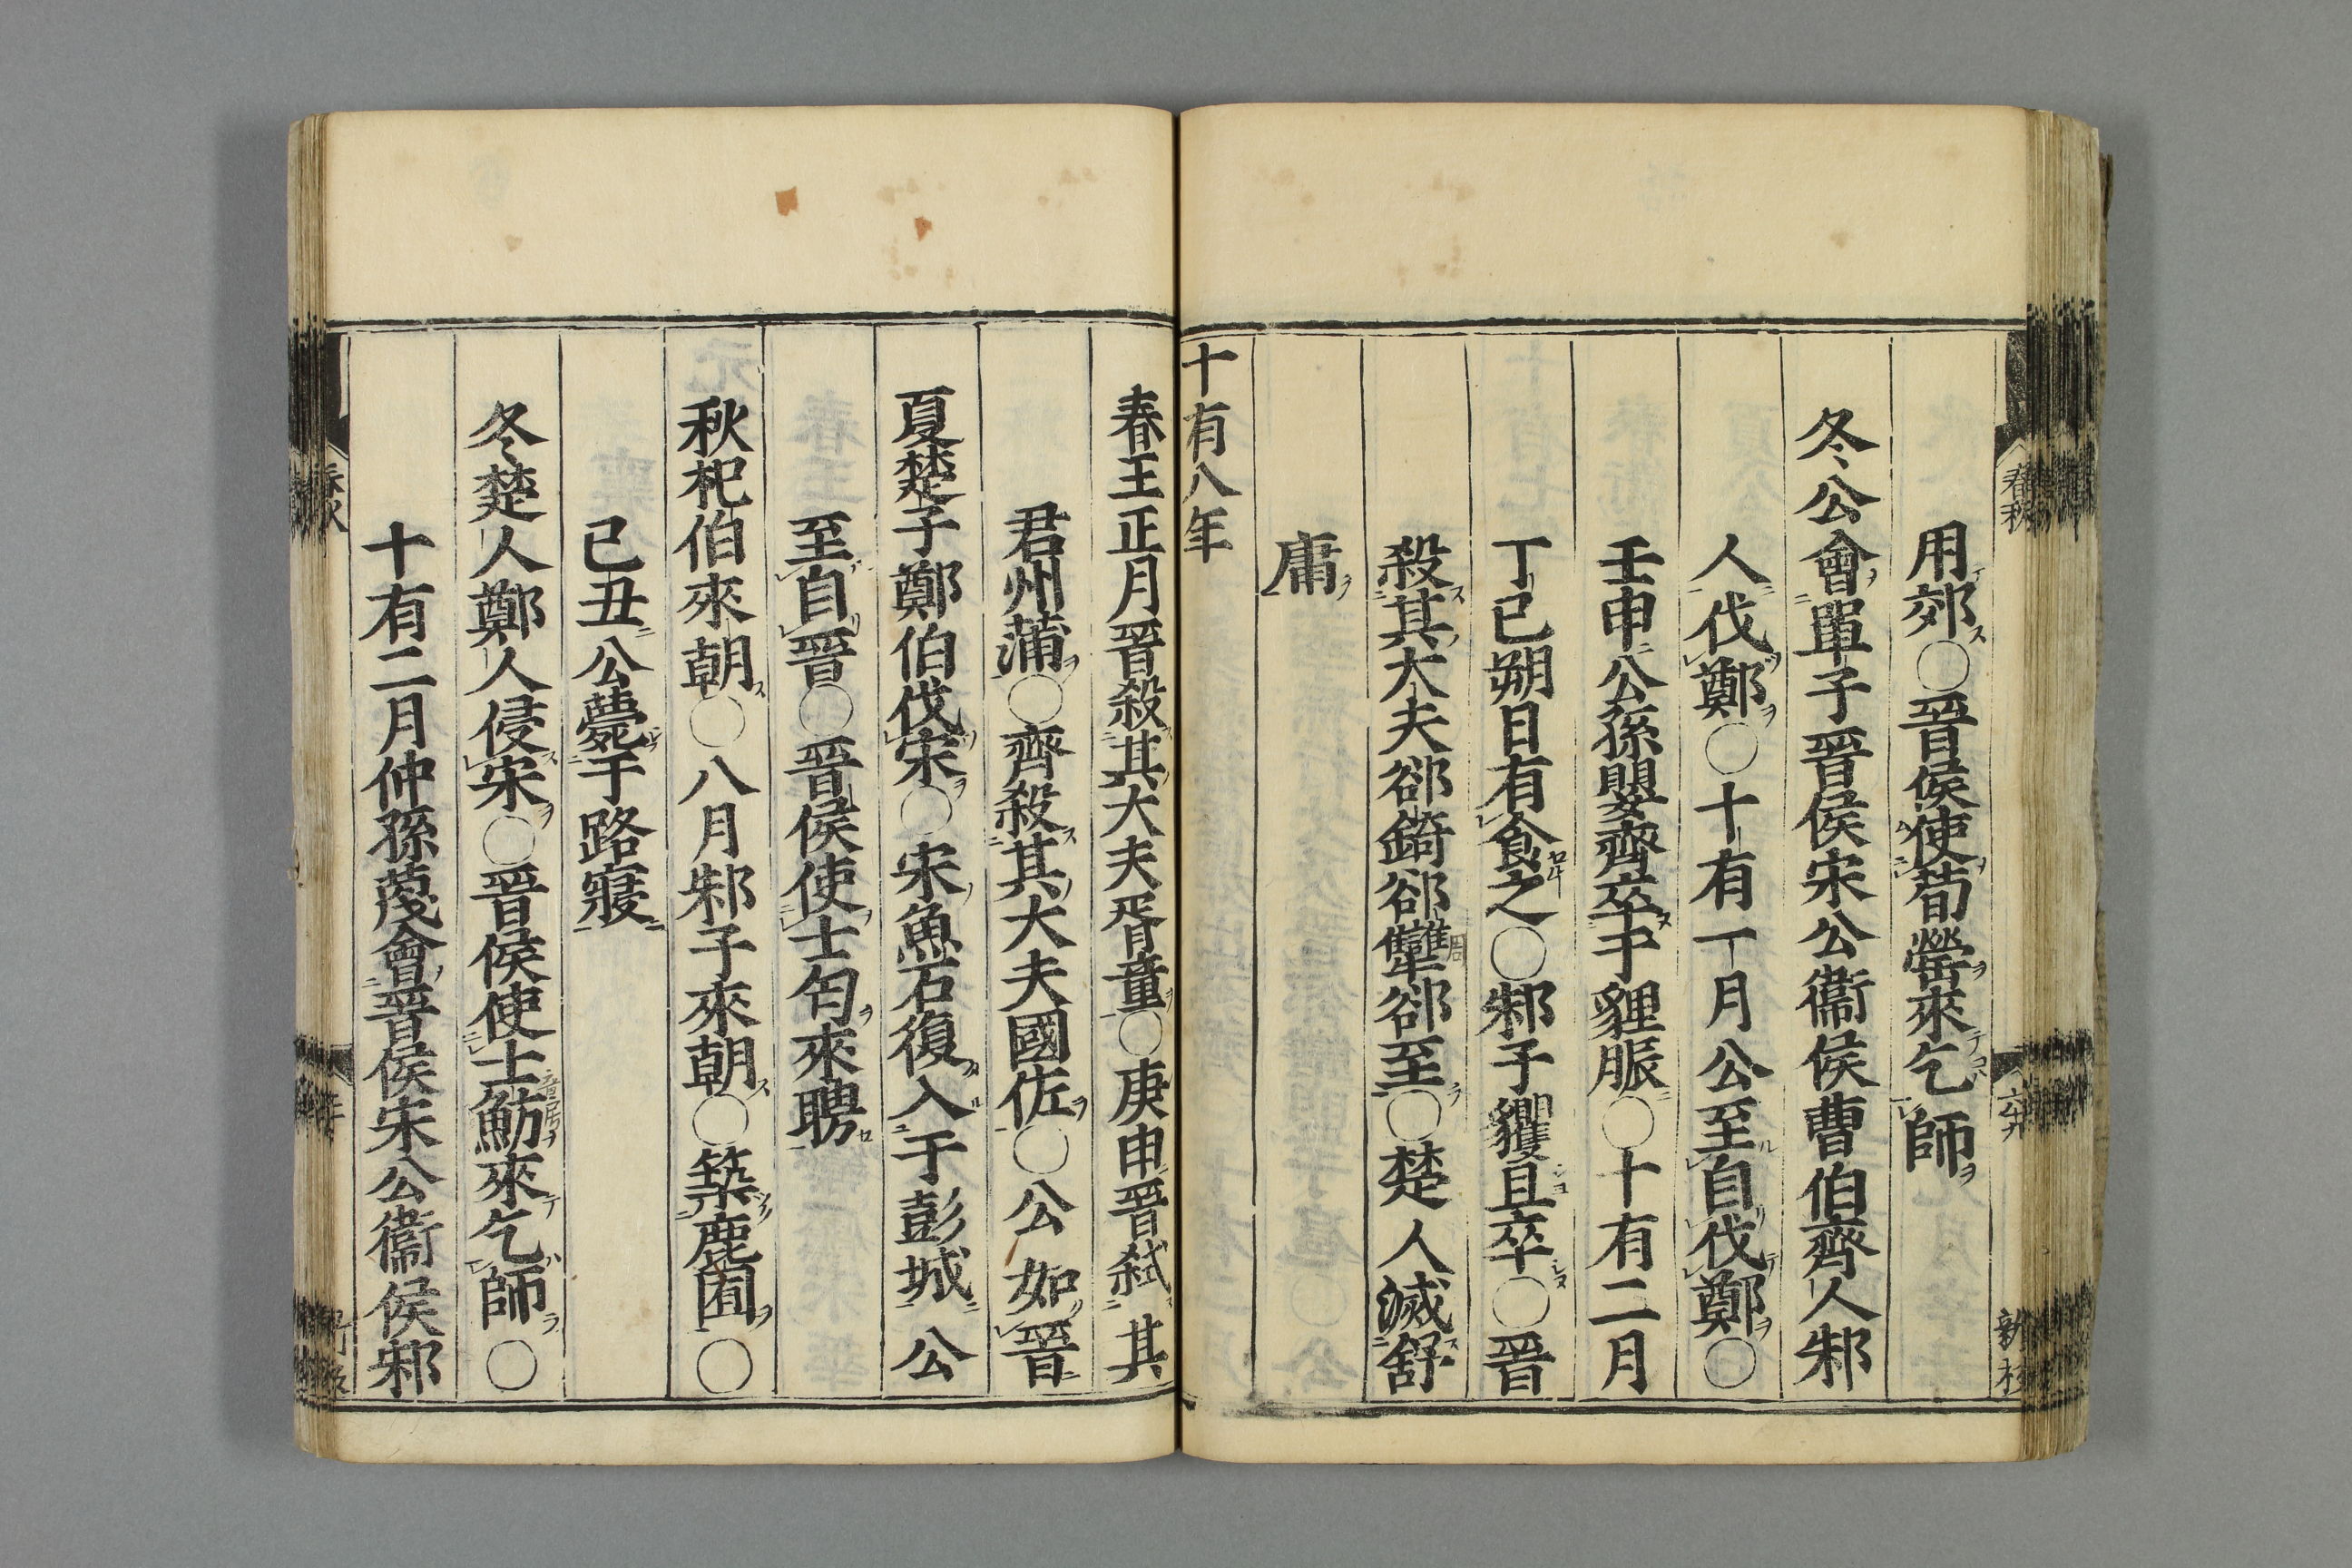 用郊○晉侯使荀罃來乞師
冬公會單子晉侯宋公衞侯曹伯齊人邾
人伐鄭○十有一月公至自伐鄭○
壬申公孫嬰齊卒于貍脤○十有二月
丁巳朔日有食之○邾子貜且卒○晉
殺其大夫郤錡郤犫郤至○楚人滅舒
庸
十有八年
春王正月晉殺其大夫胥童○庚申晉弑其
君州蒲○齊殺其大夫國佐○公如晉
夏楚子鄭伯伐宋○宋魚石復入于彭城公
至自晉○晉侯使士匄來聘
秋杞伯來朝○八月邾子來朝○築鹿囿○
己丑公薨于路寢
冬楚人鄭人侵宋○晉侯使士魴來乞師○
十有二月仲孫蔑會晉侯宋公衞侯邾